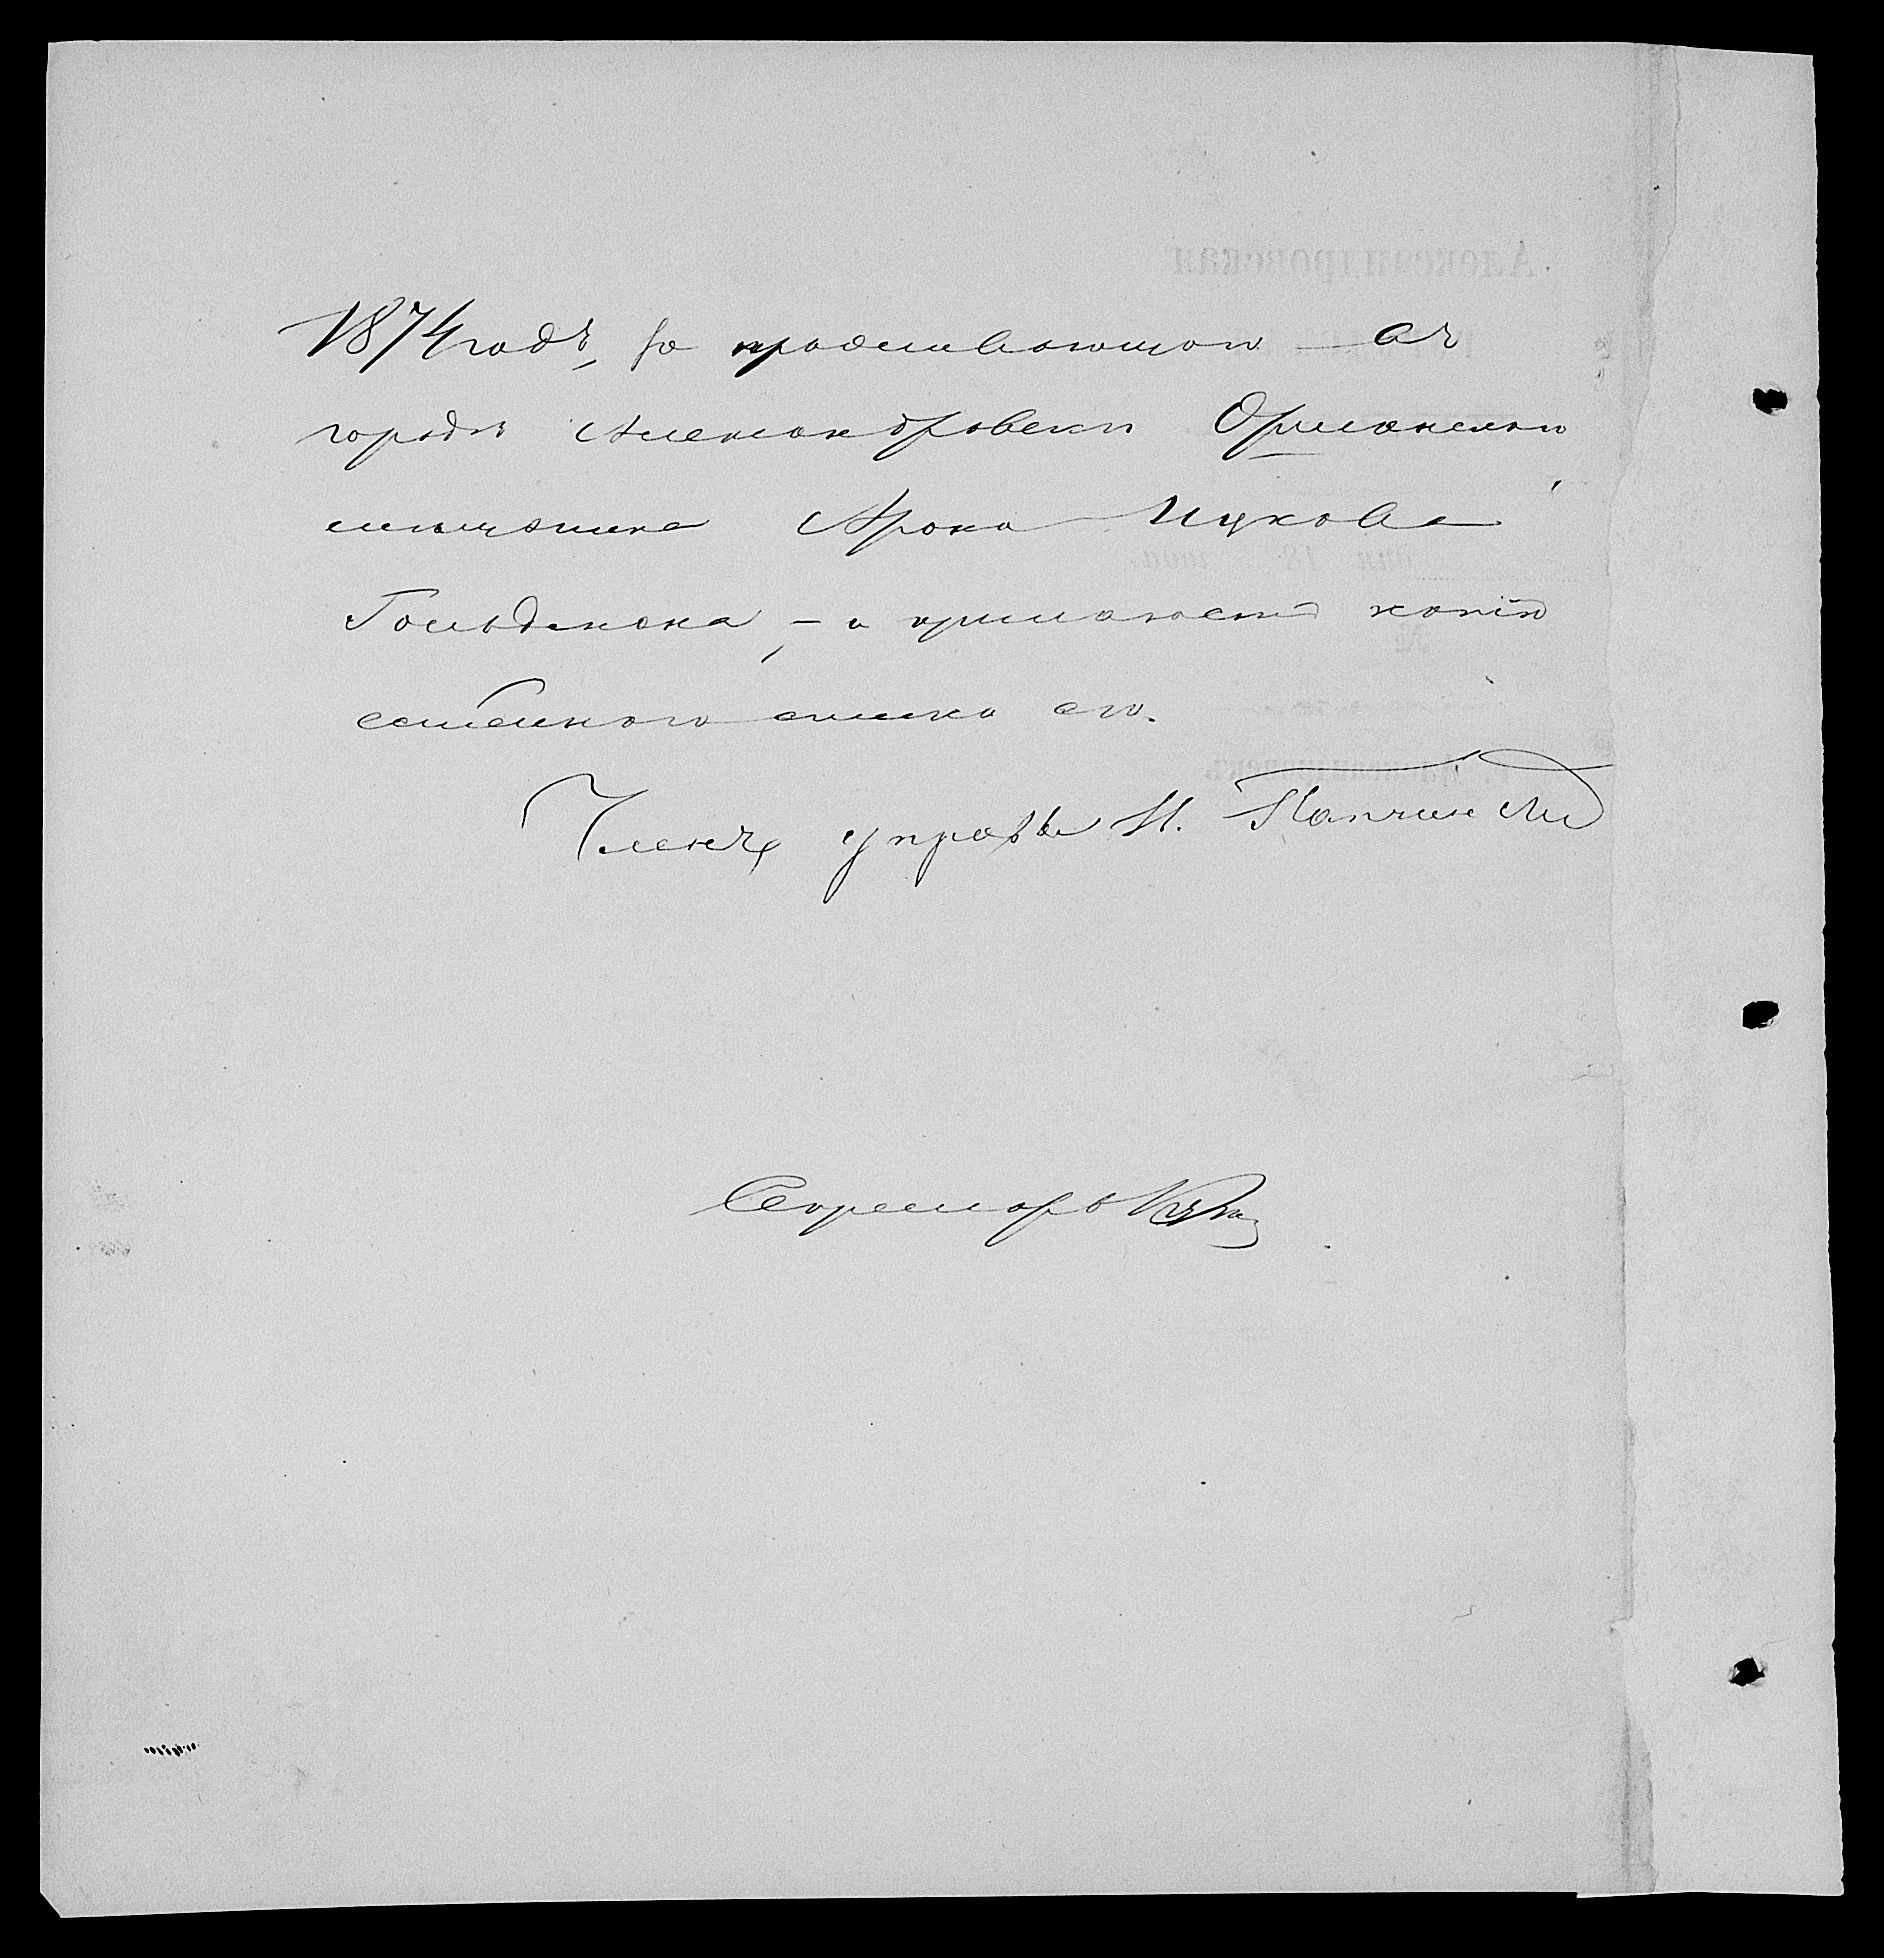 1874 годъ, за проживающаго въ
городѣ Александровскѣ Оршанскаго
мѣщанина Арона Ицкова
Гольдмана, – и приложеніи копіи
семейнаго списка его.
Членъ управы И.
Секретарь